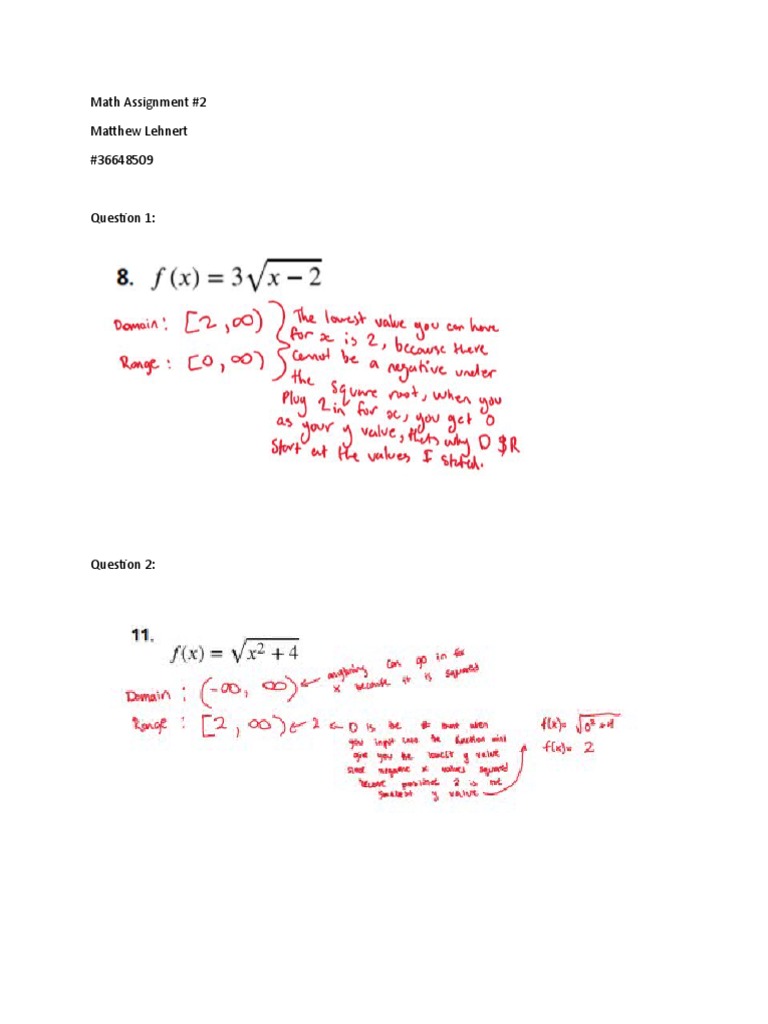 Math Assignment #2
Matthew Lehnert
#36648509
Question 1:
8. f(x) = 3√x − 2
Domain: [2, ∞)
Range: [0, ∞)
The lowest value you can have
for x is 2, because there
cannot be a negative under
the square root, when you
Plug 2 in for x, you get 0
as your y value, thats why D $ R
Start at the values I stated.
Question 2:
11. f(x) = √x² + 4
Domain: (-∞, ∞) ← anything can go in for
x because it is squared
Range: [2, ∞) ← 2 ← 0 is the # that when
you input into the function will
give you the lowest y value
since negative x values squared
become positive! 2 is
smallest y value
f(x)= √0² +4
f(x)= 2